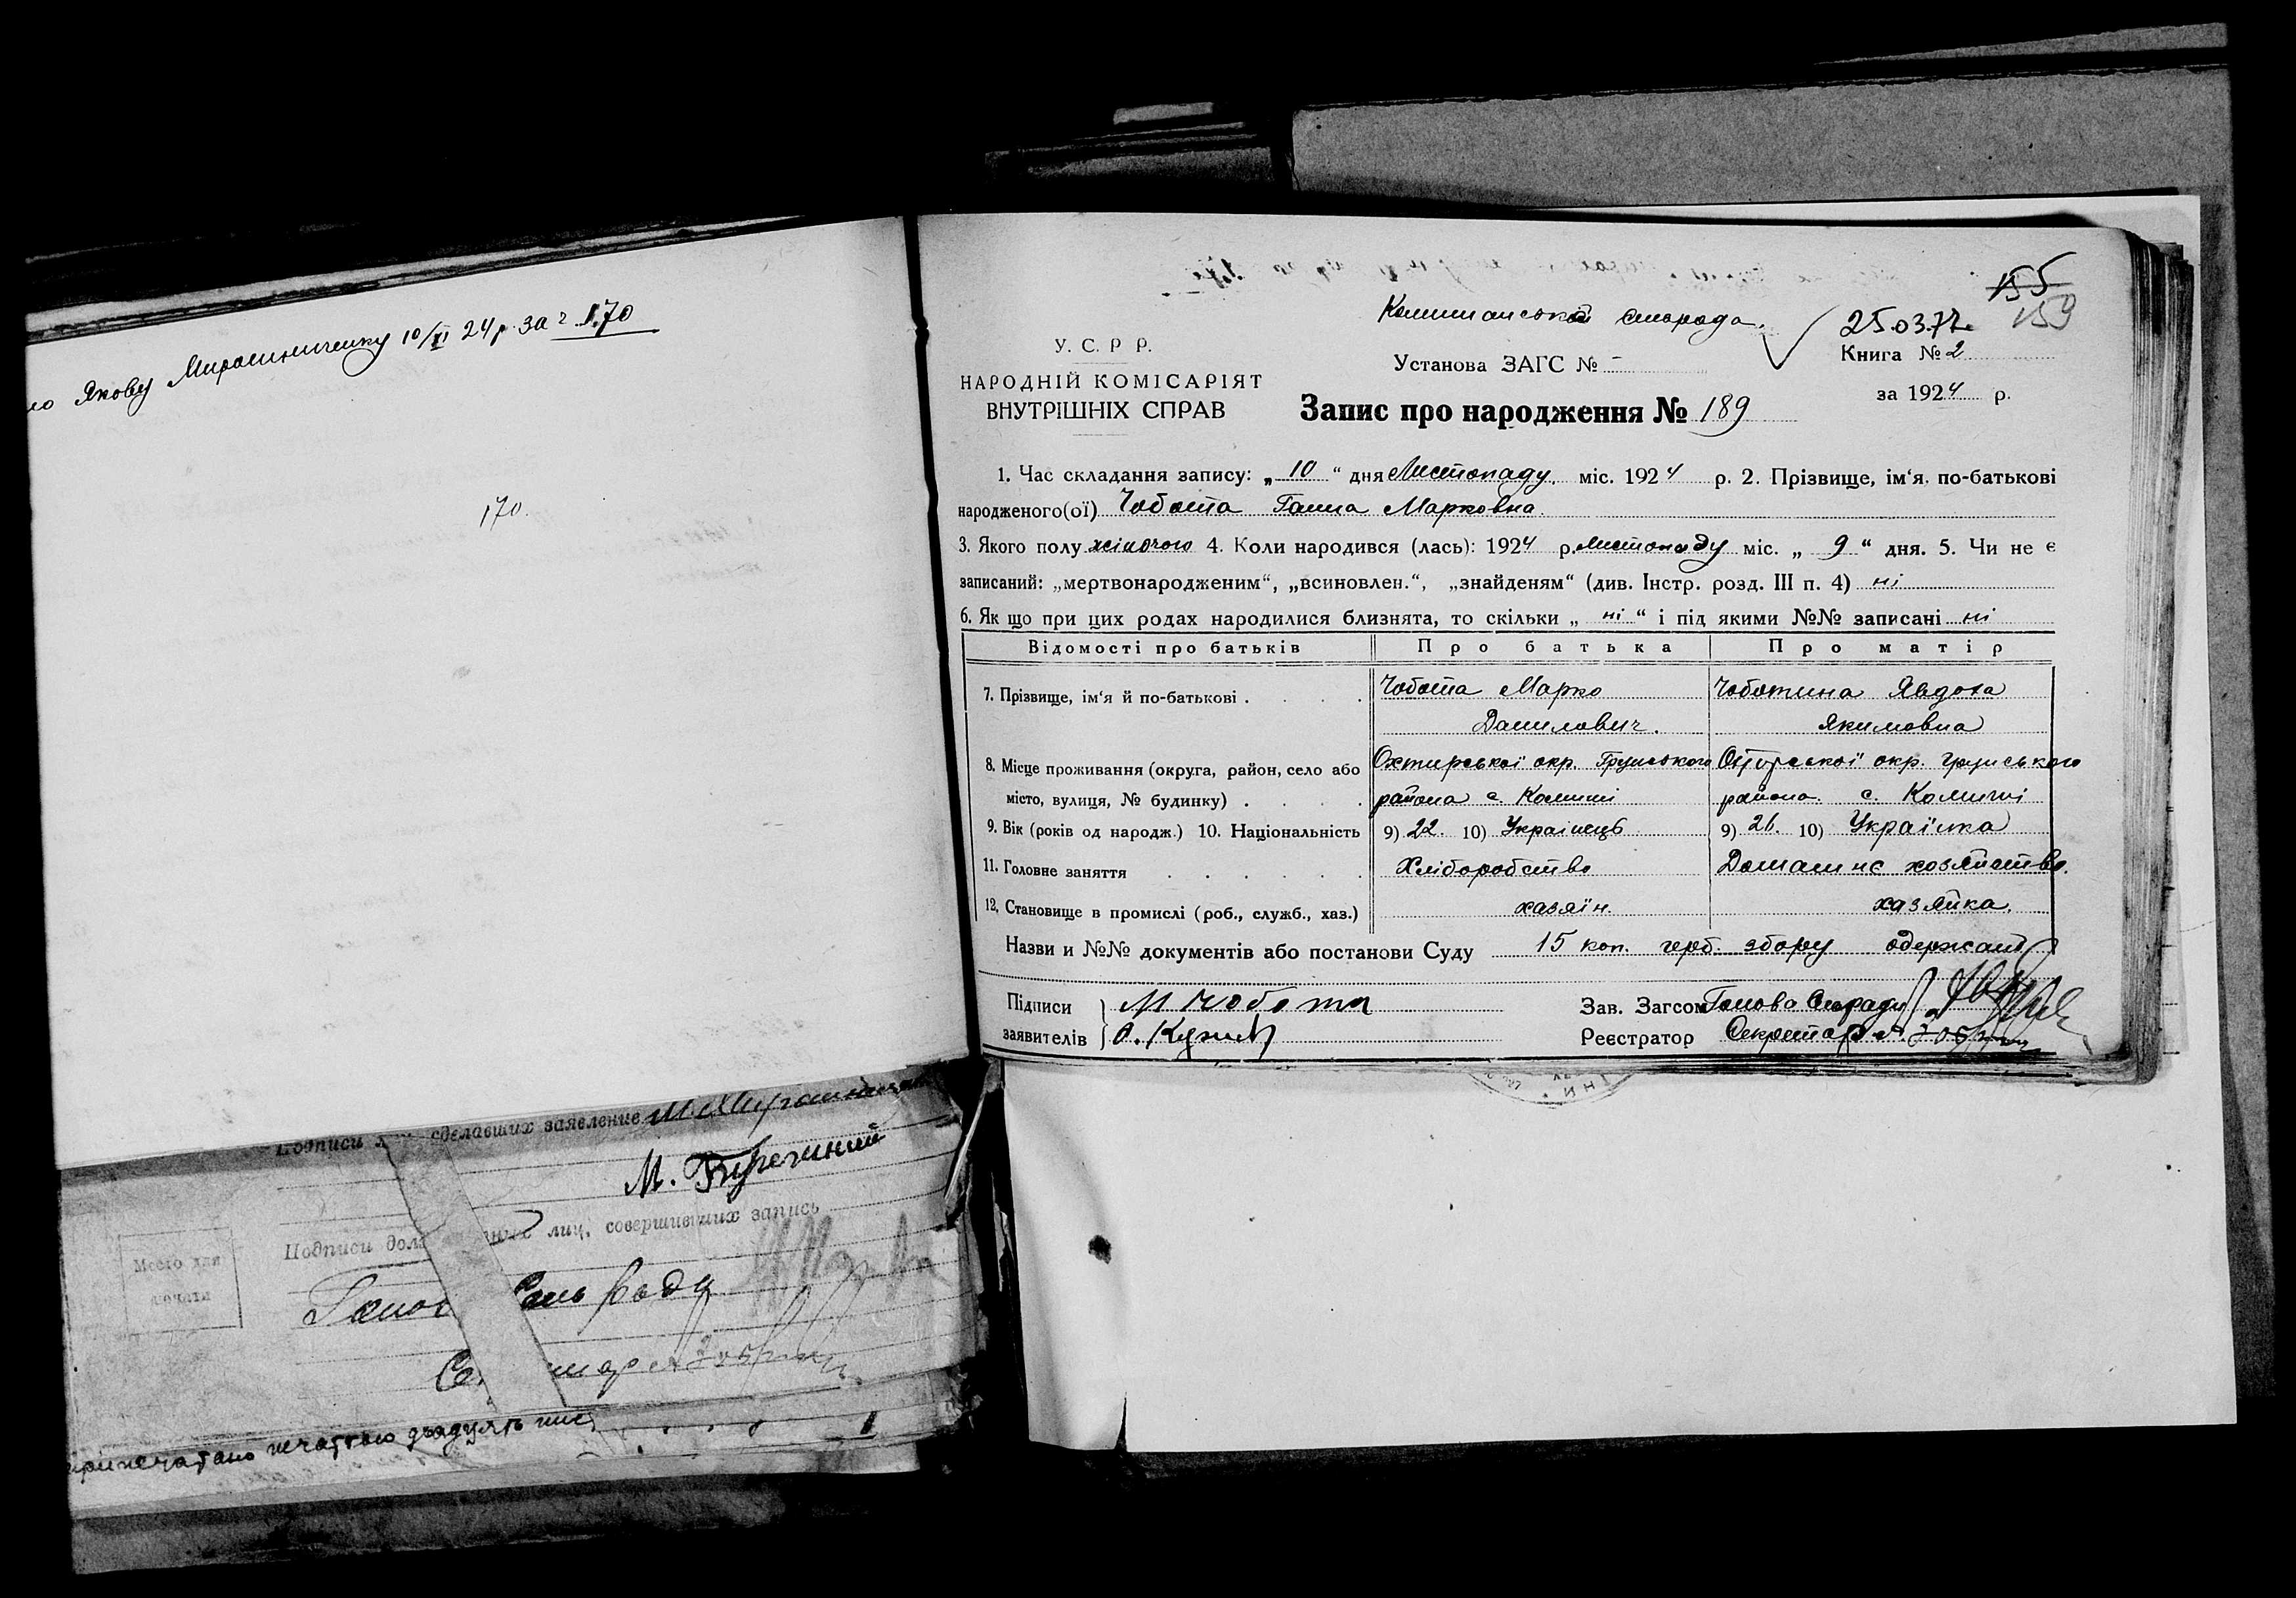 Якову Мирошниченку 10/XI 24 р. за ч. 170
170.
155
159
Комишанська сільрада.
25.03.77г.
У. С. Р Р.
Установа ЗАГС № -
Книга № 2
НАРОДНІЙ КОМІСАРІЯТ
за 1924 р.
ВНУТРІШНІХ СПРАВ
Запис про народження № 189
1. Час складання запису: „ 10 “ дня Листопаду міс. 1924 р. 2. Прізвище, ім‘я, по-батькові
народженого(ої) Чобота Ганна Марковна
3. Якого полу жіночого 4. Коли народився (лась): 1924 р. листопаду міс. „ 9 “ дня. 5. Чи не є
записаний: „мертвонародженим“, „всиновлен.“, „знайденям“ (див. Інстр. розд. III п. 4) ні
6. Як що при цих родах народилися близнята, то скільки „ ні “ і під якими №№ записані ні
Відомості про батьків Про батька Про матір
7. Прізвище, ім‘я й по-батькові . . . . Чобота Марко Чоботина Явдоха
Данилович. Якимовна
8. Місце проживання (округа, район, село або Охтирської окр. Грунського Охтирської окр. Грунського
місто, вулиця, № будинку) . . . . района с. Комиші района с. Комиші
9. Вік (років од народж.) 10. Національність 9) 22. 10) Українець 9) 21. 10) Українка
11. Головне заняття . . . . . . Хліборобство Домашнє хозяйство.
12. Становище в промислі (роб., служб., хаз.) хазяїн. хазяйка.
Назви и №№ документів або постанови Суду 15 коп. герб. збору одержано
Підписи М Чобота Зав. Загсом Голова Сільради
заявителів О. Реєстратор Секретар
Подписи сделавших заявление М. Мирошниченко
М.
Подписи лиц, совершивших запись
Место для
печати
Сіль Ради
печаттю